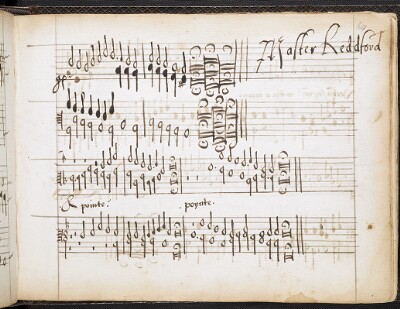 Master Reddford
A pointe.
poynte.